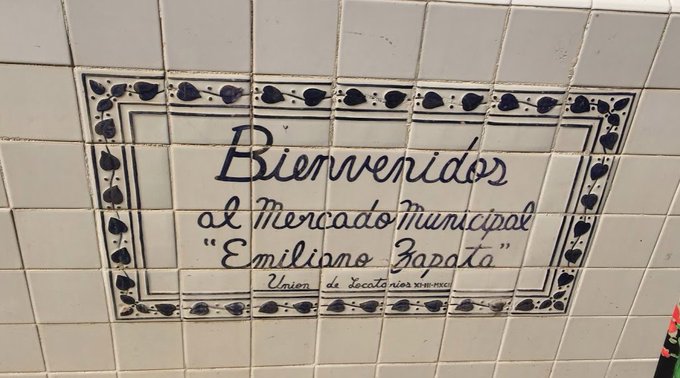 Bienvenidos
al Mercado Municipal
"Emiliano Zapata"
Union de Locatarios